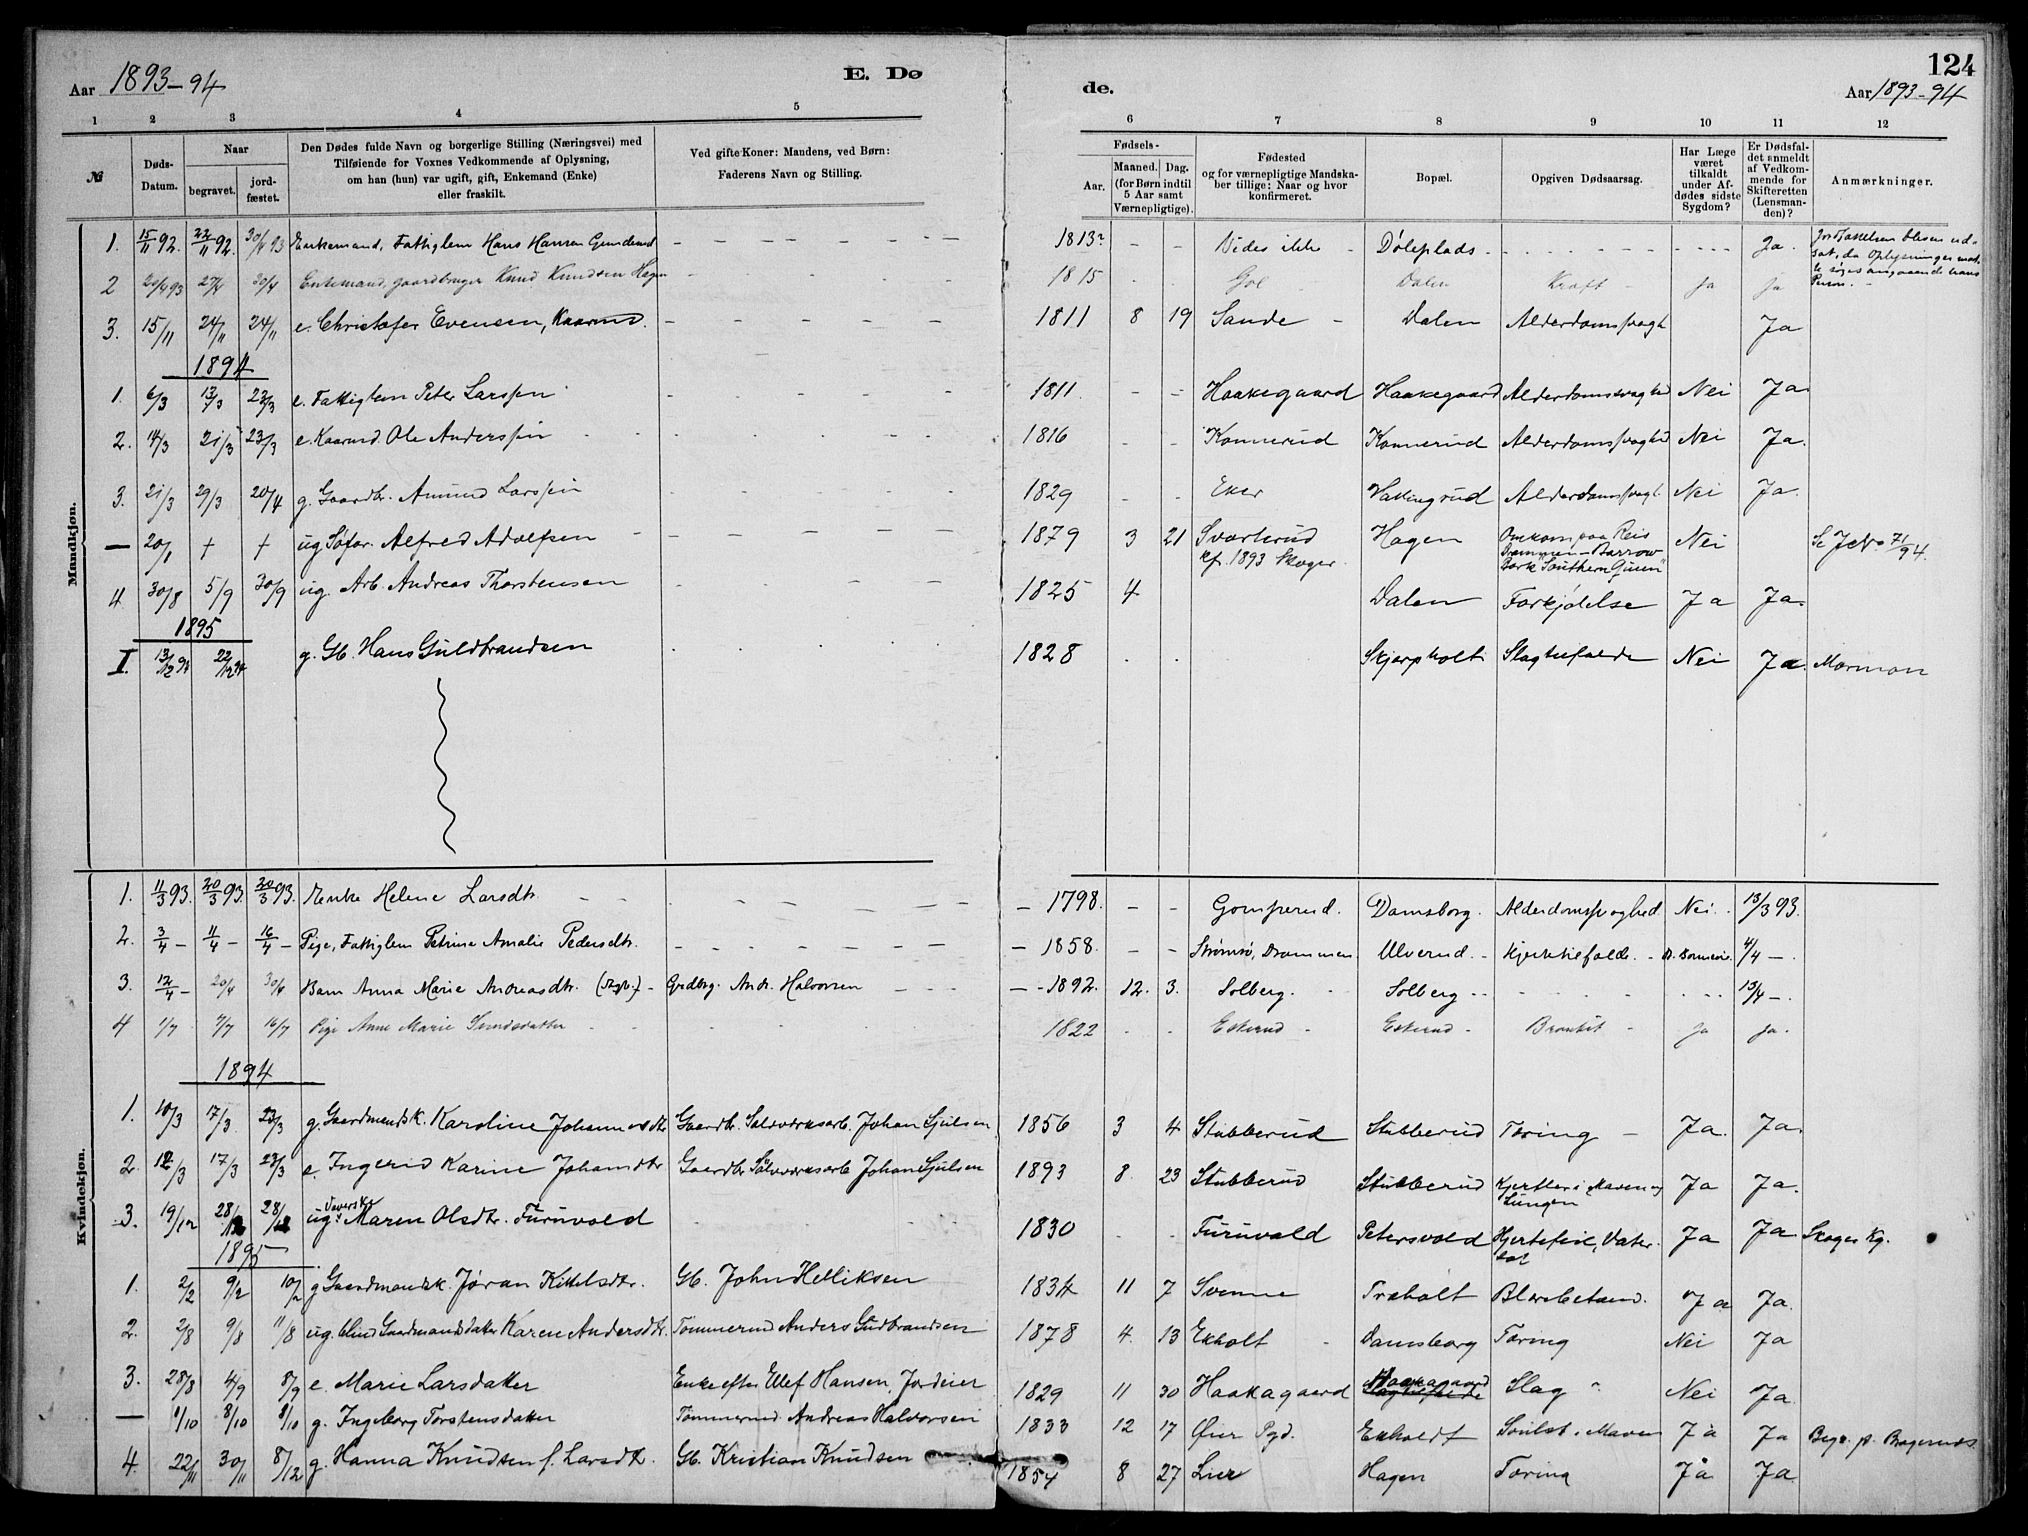 Aar 1893-94
E. Dø
de.
124
Aar 1893-94
1 2 3 4 5 6 7 8 9 10 11 12
№
Døds-Datum.
Naar
begravet.
jord-fæstet.
Den Dødes fulde Navn og borgerlige Stilling (Næringsvei) med
Tilføiende for Voxnes Vedkommende af Oplysning,
om han (hun) var ugift, gift, Enkemand (Enke)
eller fraskilt.
Ved gifte Koner: Mandens, ved Børn:
Faderens Navn og Stilling.
Fødsels-
Aar.
Maaned. Dag.
(for Børn indtil
5 Aar samt
Værnepligtige).
Fødested
og for værnepligtige Mandska-
ber tillige: Naar og hvor
konfirmeret.
Bopæl.
Opgiven Dødsaarsag.
Har Læge
været
tilkaldt
under Af-
dødes sidste
Sygdom?
Er Dødsfal-
det anmeldt
af Vedkom-
mende for
Skifteretten
(Lensman-
den)?
Anmærkninger.
Mandkjøn.
1. 15/11 92. 22/11 92. 30/4 93 Enkemand, Fattiglem Hans Hansen - - - - - - 1813? - - Vides ikke - Døleplads - - - - - Ja.
2 27/4 30/4 Enkemand, gaardbruger Knud Knudsen Hagen - - - - - 1815 - - Gol - Dalen Kraft - Ja ja
3. 15/11 24/11 24/11 e. Christofer Evensen, Kaarmd. - - - - - - 1811 8 19 Sande - Dalen Alderdomssvagh Ja
1894
1. 6/3 13/3 23/3 e. Fattiglem Peter Larssen - - - - - - 1811 - - Haakegaard Haakegaard Alderdomssvaghed Nei Ja.
2. 14/3 21/3 23/3 e. Kaarmd. Ole Anderssen - - - - - 1816 - - Konnerud Konnerud Alderdomssvaghed Nei Ja.
3. 21/3 29/3 20/4 g. Gaardbr. Amund Larssen - - - - - 1829 - - Eker Hallingrud Alderdomssvagh. Nei Ja.
— 20/1 † † ug Søfar. Alfred Adolfsen - - - - - - 1879 3 21 Svarterud Hagen Omkom paa Reis Nei Se J.No 71/94.
kf. 1893 Skoger. Drammen - Barrow
Bark "Southern Queen"
4. 30/8 5/9 30/9 ug. Arb. Andreas Thorstensen - - - - - 1825 4 Dalen Forkjølelse Ja Ja.
1895
I. 13/12 94 22/12 94 g. Gb. Hans Guldbrandsen . . . . . 1828 . . Skjerpholt Slagtilfælde Nei Ja. Mormon
Kvindekjøn.
1. 11/3 93. 20/3 93. 20/3 93. Enke Helene Larsdtr. - - - - - - - 1798. - - Gomperud. Damsborg. Alderdomssvaghed. Nei. 13/3 93.
2. 3/4 - 11/4 - 16/4 - Pige, Fattiglem Petrine Amalie Pedersdtr. - - - - - - 1858. - - Strømsø, Drammen Ulverud. - 4/4 -.
3. 12/4 - 20/4 30/4 Barn Anna Marie Andreasdtr. - Andr. Halvorsen - - - - 1892. 12. 3. Solberg. - Solberg - - - - - 13/4 -.
4 1/7 9/7 16/7 Pige Anne Marie - - - 1822 . . Eskerud - Eskerud - Bronkit - Ja ja.
1894
1. 10/3 17/3 23/3 g. Gaardmandsk. Karoline Johannesdtr Gaardbr. Sølvværksarb. Johan Sjulsen 1856 3 4 Stubberud Stubberud Tæring - Ja. Ja.
2. 12/3 17/3 23/3 e. Ingerid Karine Johansdtr Gaardbr Sølvværksarb Johan Sjulsen 1893 8. 23 Stubberud Stubberud Kjertler i Maven og Ja Ja.
Lungen
3. 19/12 28/12 28/12 ug. Væverske Maren Olsdtr. Furuvold . . 1830 . . Furuvold Petersvold Hjertefeil, Vater Ja Ja Skoger Kg.
sot
1895
1. 2/2 9/2 10/2 g Gaardmandsk. Jøran Kittelsdtr. Gb. John Helliksen 1834 11 7 Svenne Træholt Ja Ja.
2. 2/8 9/8 11/8 ug. blind Gaardmandsdatter Karen Andersdtr. Tømmermd Anders Gudbrandsen 1878 4. 13 Ekholt - Damsborg Tæring Nei Ja
3. 28/8 4/9 8/9 e. Marie Larsdatter Enke efter Ellef Hansen, Jordeier 1829 11 30 Haakagaard Haakagaard Slag Nei Ja.
— 1/10 8/10 9/10 g. Ingeborg Torstensdatter Tømmermd. Andreas Halvorsen 1833 12 17 Øier Pgd. Ekholdt i Maven Ja Ja Begr. p. Bragernæs
4. 22/11 30/11 8/12 g. Hanna Knudsen f. Larsdtr. Gb. Kristian Knudsen 1854 8 27 Lier Hagen Tæring Ja Ja